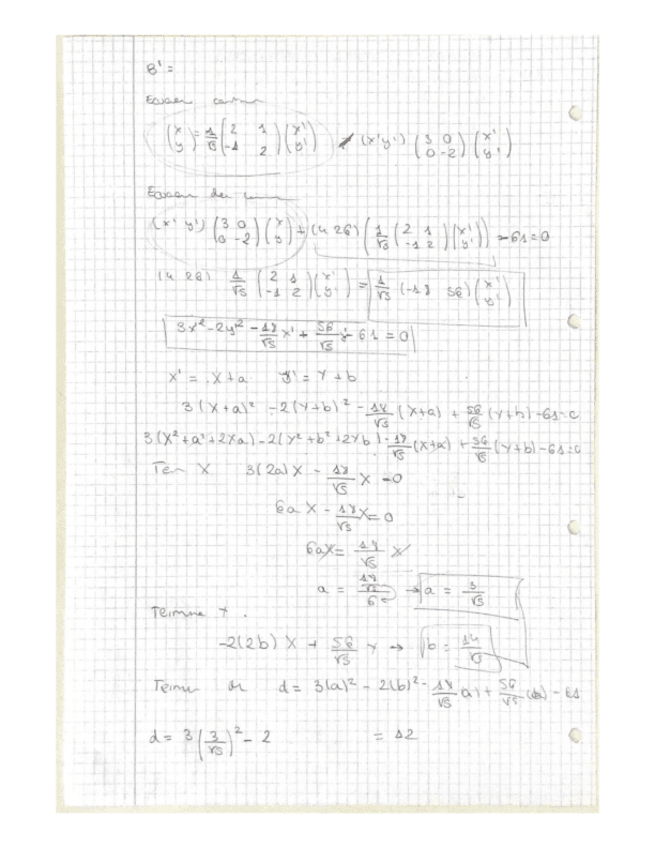 B' =
Ecuación
(x y) = 1/√5 (2 1 -1 2) (x' y') (x' y') (3 0 0 -2) (x' y')
Ecuación de
(x' y') (3 0 0 -2) (x y) + (4 26) (1/√5 (2 1 -1 2) (x' y')) - 61 = 0
(4 26) 1/√5 (2 1 -1 2) (x' y') = 1/√5 (-18 56) (x' y')
3x² - 2y² - 18/√5 x' + 56/√5 y' - 61 = 0
x' = X + a y' = Y + b
3(X+a)² - 2(Y+b)² - 18/√5 (X+a) + 56/√5 (Y+b) - 61 = 0
3(X² + a² + 2Xa) - 2(Y² + b² + 2Yb) - 18/√5 (X+a) + 56/√5 (Y+b) - 61 = 0
X 3(2a)X - 18/√5 X = 0
6aX - 18/√5 X = 0
6aX = X
a = 6 → a = 3/√5
Termino Y.
-2(2b) X + 56/√5 Y → b = 14/√5
d = 3(a)² - 2(b)² - 18/√5 (a) + 56/√5 (b) - 61
d = 3 (3/√5)² - 2 = 12